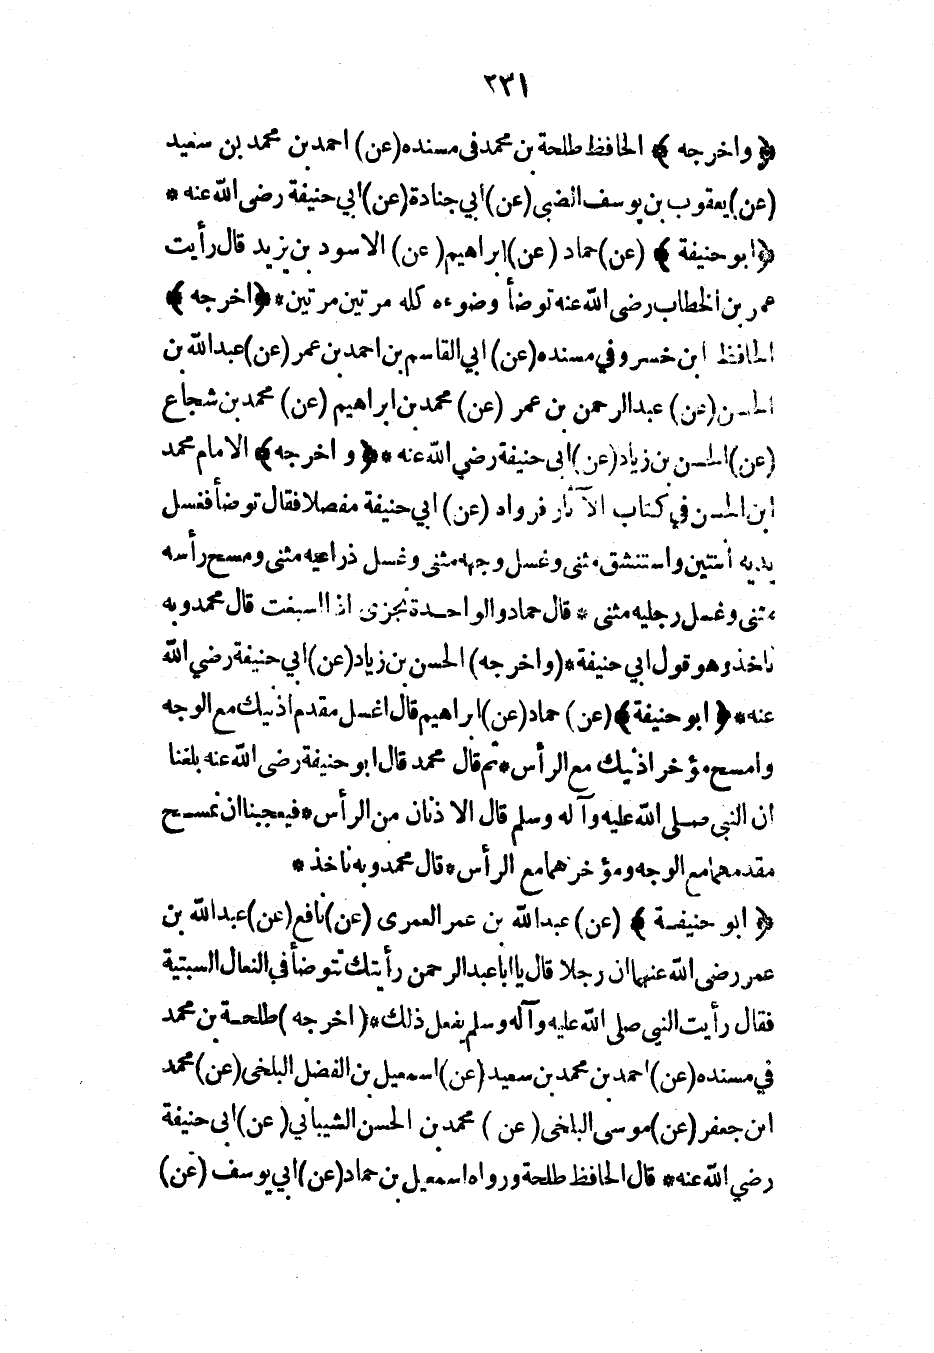 ٢٣١
﴿ واخرجه ﴾ الحافظ طلحة بن محمد فى مسنده (عن) احمد بن محمد بن سعيد
(عن) يعقوب بن يوسف الضبى (عن) ابي جنادة (عن) ابي حنيفة رضى الله عنه *
﴿ ابو حنيفة ﴾ (عن) حماد (عن) ابراهيم (عن) الاسود بن يزيد قال رأيت
عمر بن الخطاب رضى الله عنه توضأ وضوءه كله مرتين مرتين * ﴿ اخرجه ﴾
الحافظ ابن خسرو في مسنده (عن) ابي القاسم بن احمد بن عمر (عن) عبدالله بن
الحسن (عن) عبدالرحمن بن عمر (عن) محمد بن ابراهيم (عن) محمد بن شجاع
(عن) الحسن بن زياد (عن) ابى حنيفة رضي الله عنه * ﴿ و اخرجه ﴾ الامام محمد
ابن الحسن في كتاب الآثار فرواه (عن) ابي حنيفة مفصلا فقال توضأ فغسل
يديه اثنتين واستنشق مثنى وغسل وجهه مثنى وغسل ذراعيه مثنى ومسح رأسه
مثنى وغسل رجليه مثنى * قال حماد والواحدة تجزى اذا اسبغت قال محمد وبه
ناخذ وهو قول ابي حنيفة * (واخرجه) الحسن بن زياد (عن) ابي حنيفة رضي الله
عنه * ﴿ ابو حنيفة ﴾ (عن) حماد (عن) ابراهيم قال اغسل مقدم اذنيك مع الوجه
وامسح مؤخر اذنيك مع الرأس * ثم قال محمد قال ابو حنيفة رضى الله عنه بلغنا
ان النبي صلى الله عليه وآله وسلم قال الاذنان من الرأس * فيعجبنا ان نمسح
مقدمهما مع الوجه ومؤخرهما مع الرأس * قال محمد وبه ناخذ *
﴿ ابو حنيفة ﴾ (عن) عبدالله بن عمر العمرى (عن) نافع (عن) عبدالله بن
عمر رضى الله عنهما ان رجلا قال يا ابا عبدالرحمن رأيتك تتوضأ في النعال السبتية
فقال رأيت النبي صلى الله عليه وآله وسلم يفعل ذلك * (اخرجه) طلحة بن محمد
في مسنده (عن) احمد بن محمد بن سعيد (عن) اسمعيل بن الفضل البلخى (عن) محمد
ابن جعفر (عن) موسى البلخى (عن) محمد بن الحسن الشيباني (عن) ابى حنيفة
رضي الله عنه * قال الحافظ طلحة ورواه اسمعيل بن حماد (عن) ابي يوسف (عن)